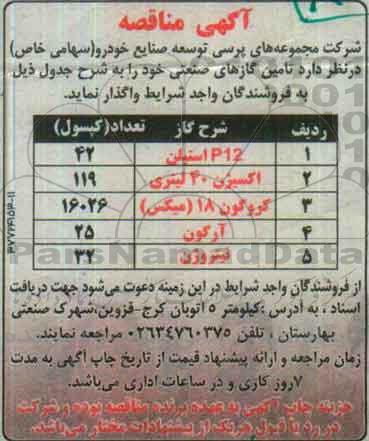 آگهی مناقصه
شرکت مجموعه‌های پرسی توسعه صنایع خودرو(سهامی خاص)
درنظر دارد تامین گازهای صنعتی خود را به شرح جدول ذیل
به فروشندگان واجد شرایط واگذار نماید.
ردیف شرح گاز تعداد(کپسول)
۱ P12 استیلن ۴۲
۲ اکسیژن ۴۰ لیتری ۱۱۹
۳ کروگون ۱۸ (میکس) ۱۶۰۲۶
۴ آرگون ۲۵
۵ نیتروژن ۳۲
ParsNamadData
از فروشندگان واجد شرایط در این زمینه دعوت می‌شود جهت دریافت
اسناد ، به آدرس :کیلومتر ۵ اتوبان کرج-قزوین،شهرک صنعتی
بهارستان ، تلفن ۰۲۶۳۴۷۶۰۳۷۵ مراجعه نمایند.
زمان مراجعه و ارائه پیشنهاد قیمت از تاریخ چاپ آگهی به مدت
۷روز کاری و در ساعات اداری می‌باشد.
هزینه چاپ آگهی به عهده برنده مناقصه بوده و شرکت
در رد یا قبول هریک از پیشنهادات مختار می‌باشد.